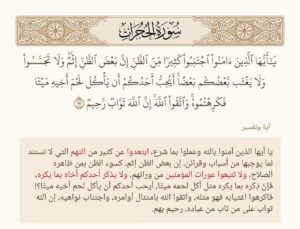 سُورَةُ الحُجُرَات
يَٰٓأَيُّهَا ٱلَّذِينَ ءَامَنُواْ ٱجۡتَنِبُواْ كَثِيرٗا مِّنَ ٱلظَّنِّ إِنَّ بَعۡضَ ٱلظَّنِّ إِثۡمٞۖ وَلَا تَجَسَّسُواْ
وَلَا يَغۡتَب بَّعۡضُكُم بَعۡضًاۚ أَيُحِبُّ أَحَدُكُمۡ أَن يَأۡكُلَ لَحۡمَ أَخِيهِ مَيۡتٗا
فَكَرِهۡتُمُوهُۚ وَٱتَّقُواْ ٱللَّهَۚ إِنَّ ٱللَّهَ تَوَّابٞ رَّحِيمٞ ١٢
آية وتفسير
يا أيها الذين آمنوا بالله وعملوا بما شرع، ابتعدوا عن كثير من التهم التي لا تستند
لما يوجبها من أسباب وقرائن، إن بعض الظن إثم، كسوء الظن بمن ظاهره
الصلاح، ولا تتبعوا عورات المؤمنين من ورائهم، ولا يذكر أحدكم أخاه بما يكره،
فإن ذِكْره بما يكره مثل أكل لحمه ميتًا، أيحب أحدكم أن يأكل لحم أخيه ميتًا؟!
فاكرهوا اغتيابه فهو مثله، واتقوا الله بامتثال أوامره، واجتناب نواهيه، إن الله
تواب على من تاب من عباده، رحيم بهم.